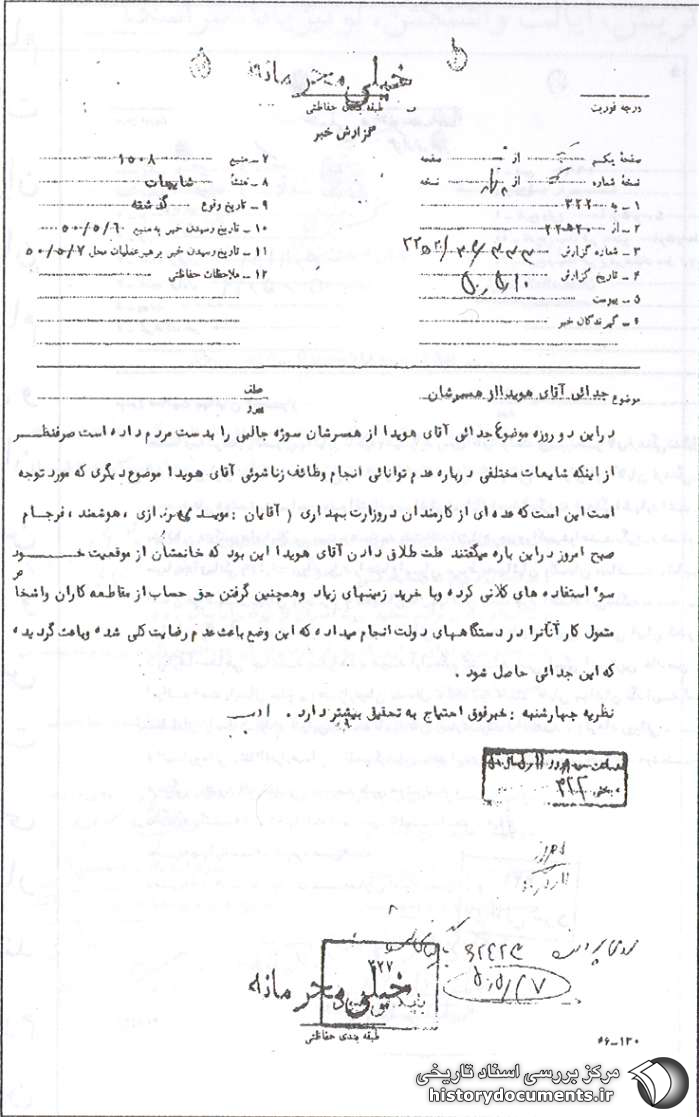 خیلی محرمانه
طبقه بندی حفاظتی
درجه فوریت
گزارش خبر
صفحه یکم از صفحه
نسخه شماره از نسخه
۱ ـ به ۳۲۲
۲ ـ از ۲۲۵۲۰
۳ ـ شماره گزارش
۴ ـ تاریخ گزارش
۵ ـ پیوست
۶ ـ گیرندگان خبر
۷ ـ منبع ۱۵۰۸
۸ ـ منشأ شایعات
۹ ـ تاریخ وقوع گذشته
۱۰ ـ تاریخ رسیدن خبر به منبع ۵۰/۵/۶
۱۱ ـ تاریخ رسیدن خبر برهبر عملیات محل ۵۰/۵/۷
۱۲ ـ ملاحظات حفاظتی
موضوع جدائی آقای هویدا از همسرشان
عطف
پیرو
در این دو روزه موضوع جدائی آقای هویدا از همسرشان سوژه جالبی را بدست مردم داده است صرفنظر
از اینکه شایعات مختلفی درباره عدم توانائی انجام وظائف زناشوئی آقای هویدا موضوع دیگری که مورد توجه
است این است که عده ای از کارمندان دروزارت بهداری ( آقایان : هوشمند ، فرجام
صبح امروز دراین باره میگفتند علت طلاق دادن آقای هویدا این بود که خانمشان از موقعیت خود
سوء استفاده های کلانی کرده وبا خرید زمینهای زیاد وهمچنین گرفتن حق حساب از مقاطعه کاران واشخاص
متمول کار آنانرا در دستگاههای دولت انجام میداده که این وضع باعث عدم رضایت کلی شده وباعث گردیده
که این جدائی حاصل شود .
نظریه چهارشنبه : خبر فوق احتیاج به تحقیق بیشتر دارد .
بخش ۳۲۲
خیلی محرمانه
طبقه بندی حفاظتی
۱۲۰ـ۶
مرکز بررسی اسناد تاریخی
historydocuments.ir